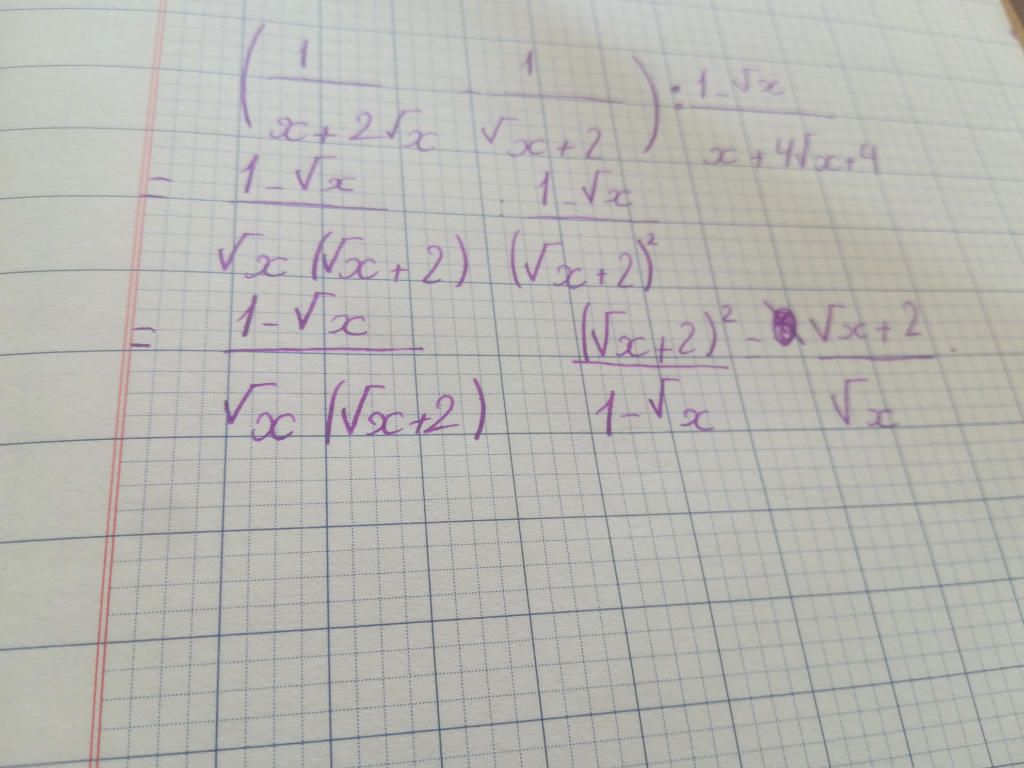 ( 1/(x+2√x) 1/(√x+2) ) : (1-√x)/(x+4√x+4)
= (1-√x)/(√x(√x+2)) : (1-√x)/(√x+2)²
= (1-√x)/(√x(√x+2)) (√x+2)²/(1-√x) = (√x+2)/√x .